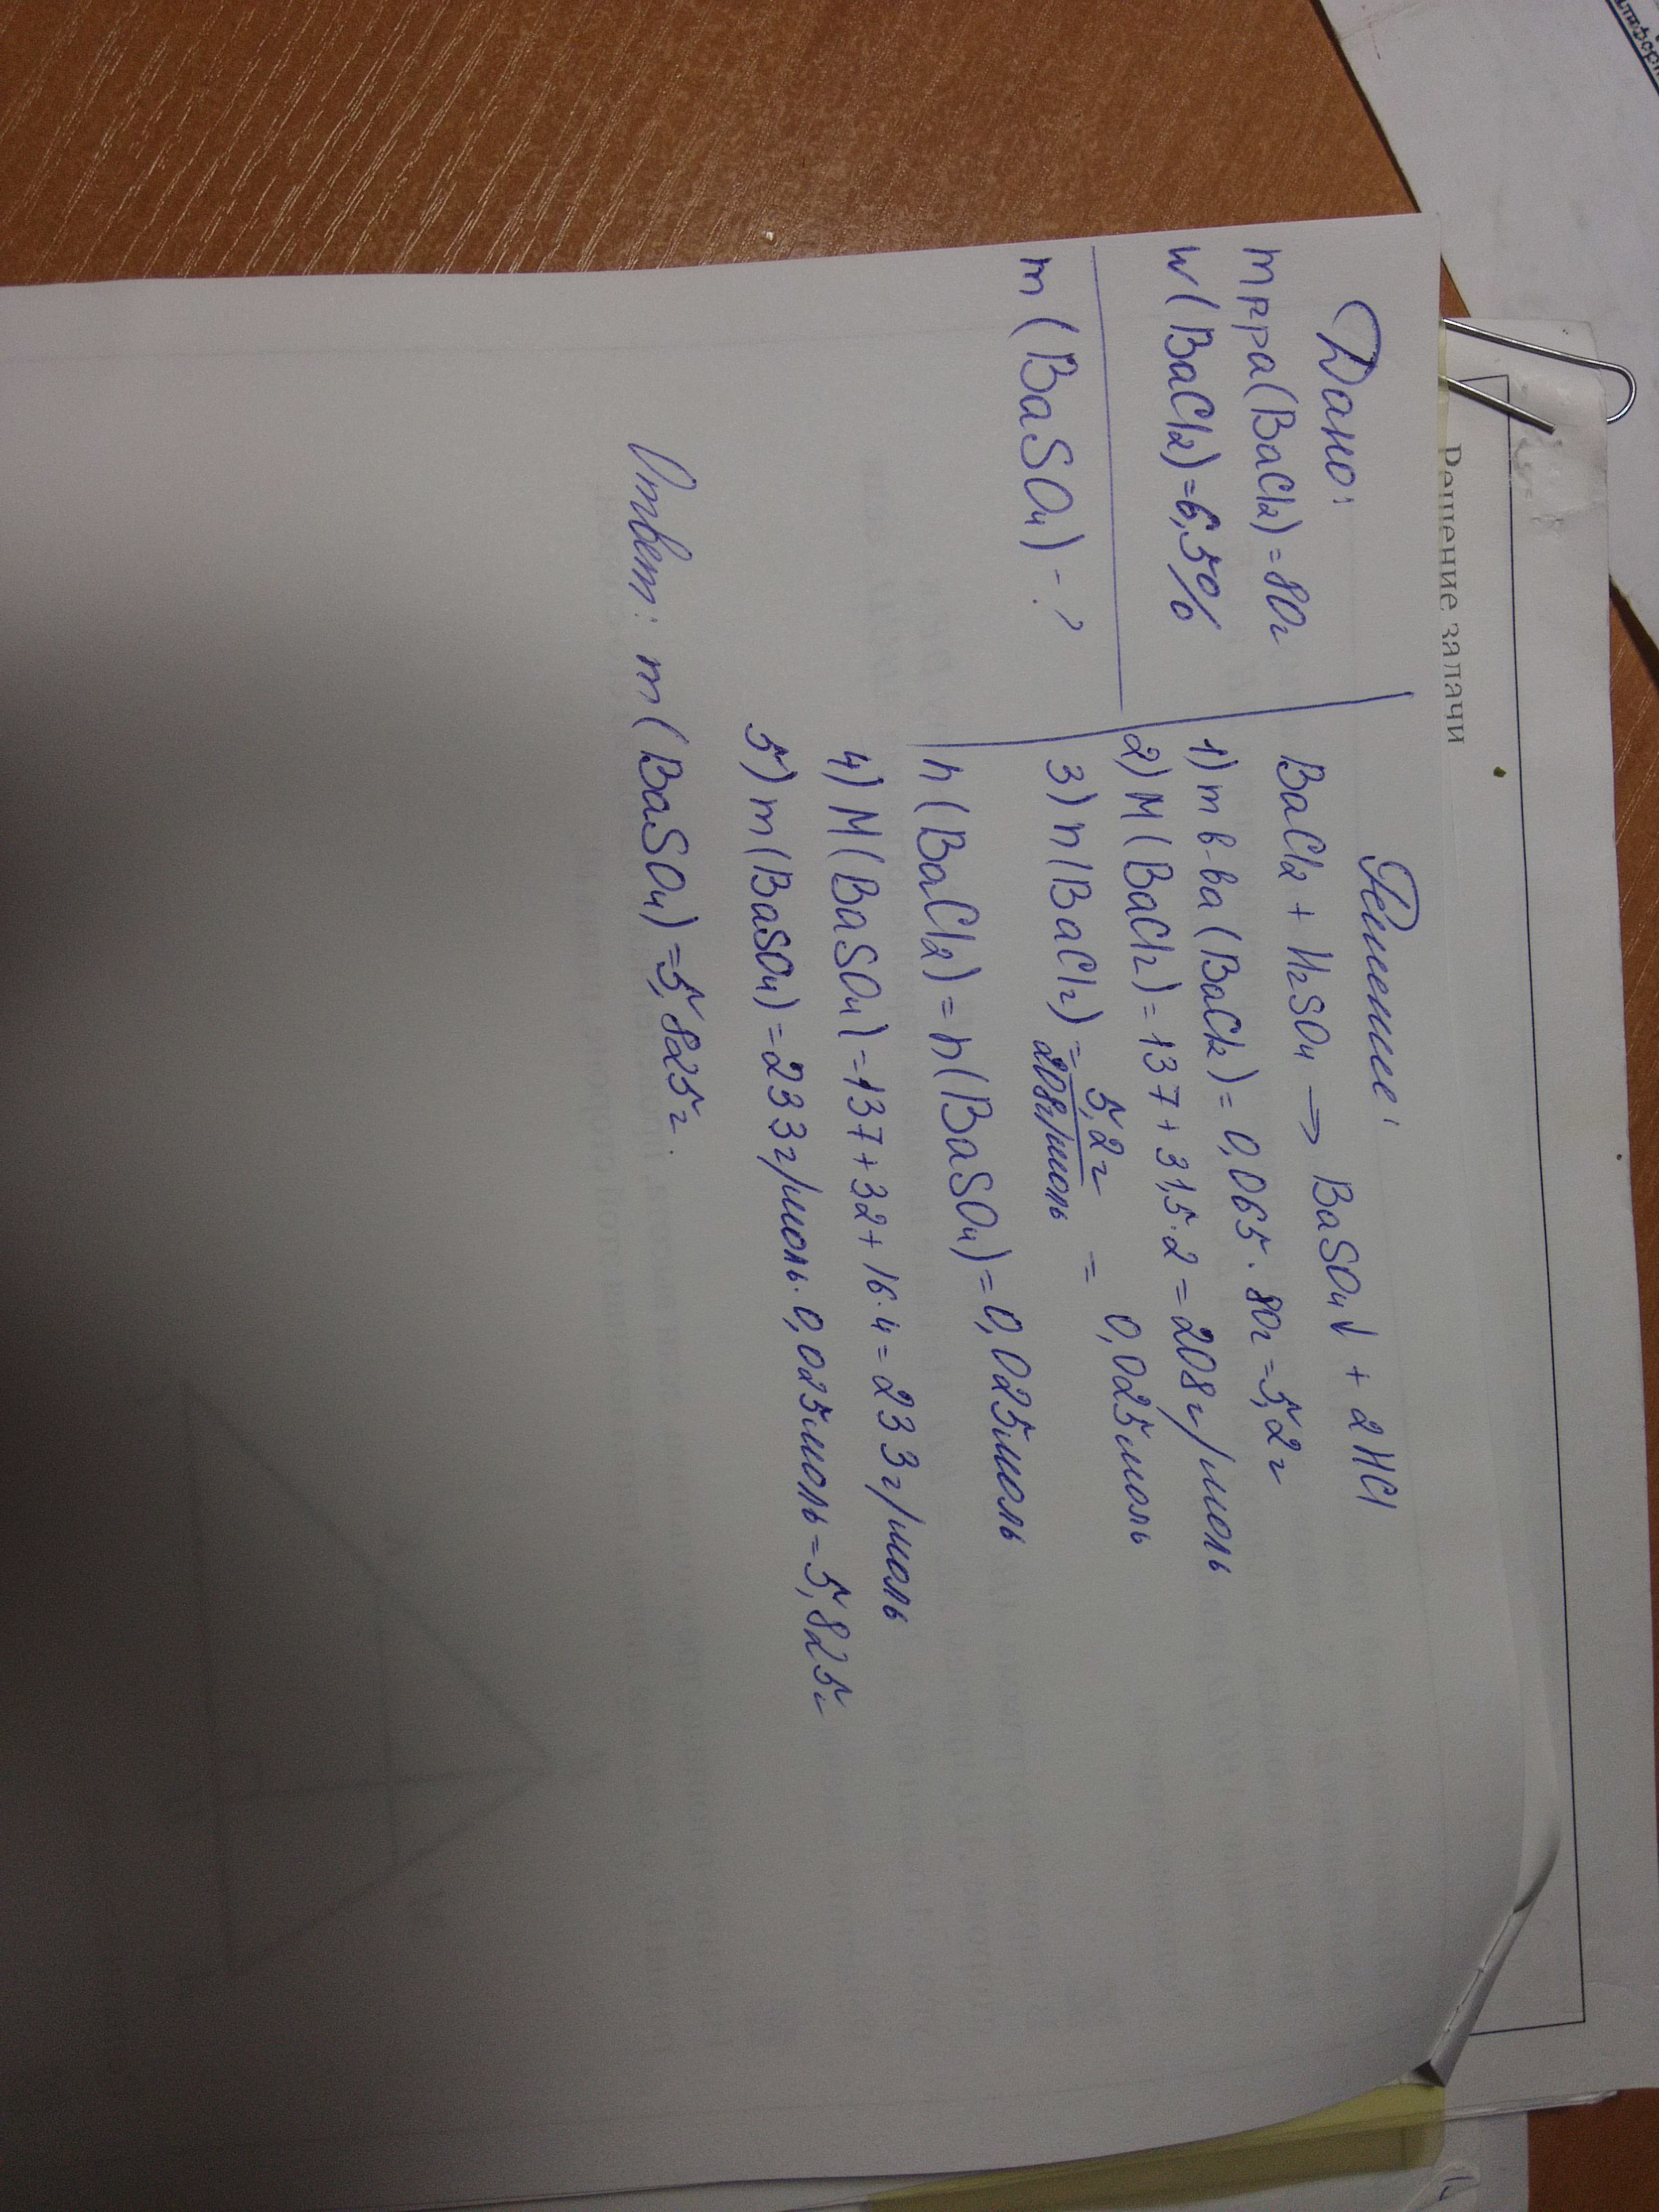 Решение задачи
Дано:
mр-ра(BaCl2)=80г
w(BaCl2)=6,5%
m(BaSO4)-?
Решение:
BaCl2 + H2SO4 → BaSO4↓ + 2HCl
1) m в-ва (BaCl2) = 0,065 · 80г = 5,2г
2) M(BaCl2) = 137 + 31,5·2 = 208г/моль
3) n(BaCl2) = 5,2г / 208г/моль = 0,025моль
n(BaCl2) = n(BaSO4) = 0,025моль
4) M(BaSO4) = 137 + 32 + 16·4 = 233г/моль
5) m(BaSO4) = 233г/моль · 0,025моль = 5,825г
Ответ: m(BaSO4) = 5,825г.